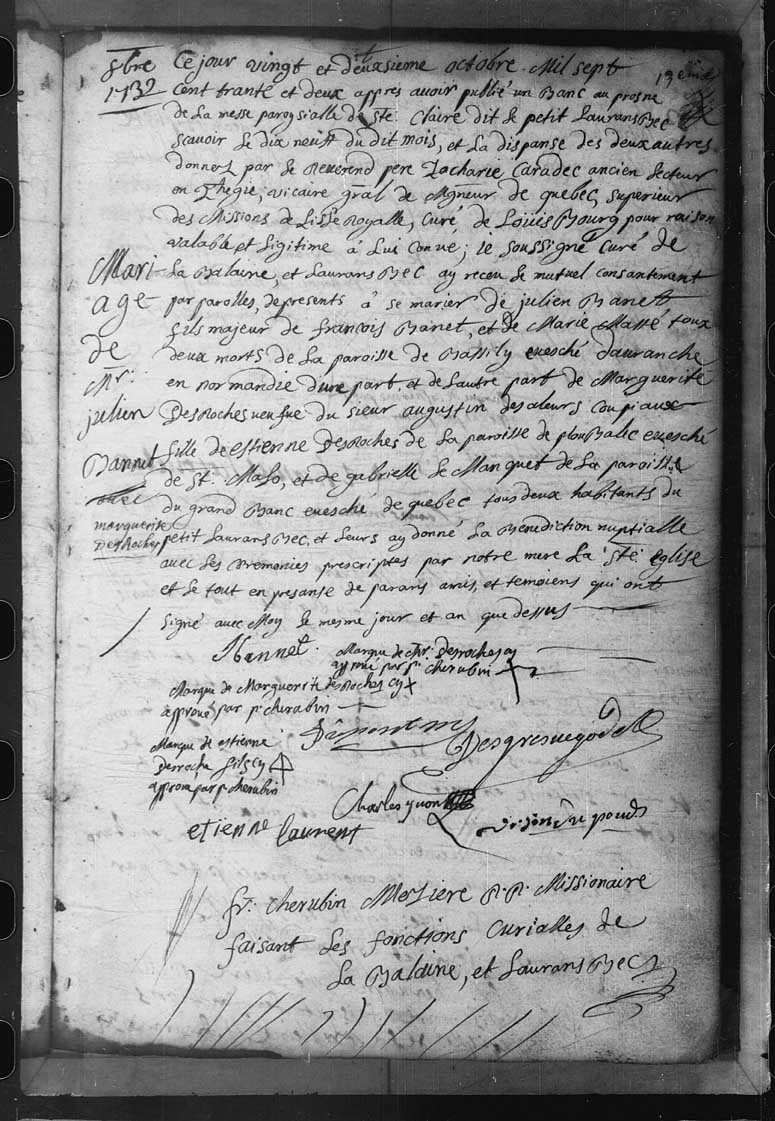 8bre
1732
19eme
Ce jour vingt et deuxsieme octobre Mil sept
cent trante et deux appres auoir publié un Banc au prosne
de la messe paroyssialle de Ste. Claire dit le petit LauransBec
scauoir le dix neuff du dit mois, et La dispanse des deux autres
donnez par le Reverend pere Zacharie Caradec ancien Lecteur
en Thegie, vicaire gñal de Mgneur de quebec, superieur
des Missions de Lisle Royalle, curé de Loüis Bourg pour raison
valable et Ligitime à Lui conue; Je soussigné curé de
La Balaine, et LauransBec ay receu le mutuel consantement
par parolles, de presents à se marier de julien Banett
fils majeur de francois Banet, et de Marie Massé tous
deux morts de La paroisse de Bassily euesché dauranche
en normandie dune part, et de Lautre part de Marguerite
DesRoches veufue du sieur augustin desaleurs coupiaux
fille de estienne DesRoches de La paroisse de plouBalec euesché
de St. Malo, et de gabrielle Le Manquet de La paroisse
du grand Banc euesché de quebec tous deux habitants du
petit LauransBec, et Leurs ay donné La Benediction nuptialle
avec Les seremonies prescriptes par notre mere La Ste eglise
et Le tout en presanse de parans amis, et temoiens qui ont
signé avec Moy Le mesme jour et an que dessus
Mari
age
de
Mr:
julien
Bannet
avec
marguerite
DesRoches
JBannet.
Marque de Desroches cy
approué par pr cherubin
Marque de Marguerite desRoches cy x
approué par pr cherubin
Marque de estienne
Desroche fils cy
approué par pr cherubin
Charles yuon
etienne laurent
fr. Cherubin Mesliere R.R. Missionaire
faisant Les fonctions Curialles de
La Balaine, et LauransBec